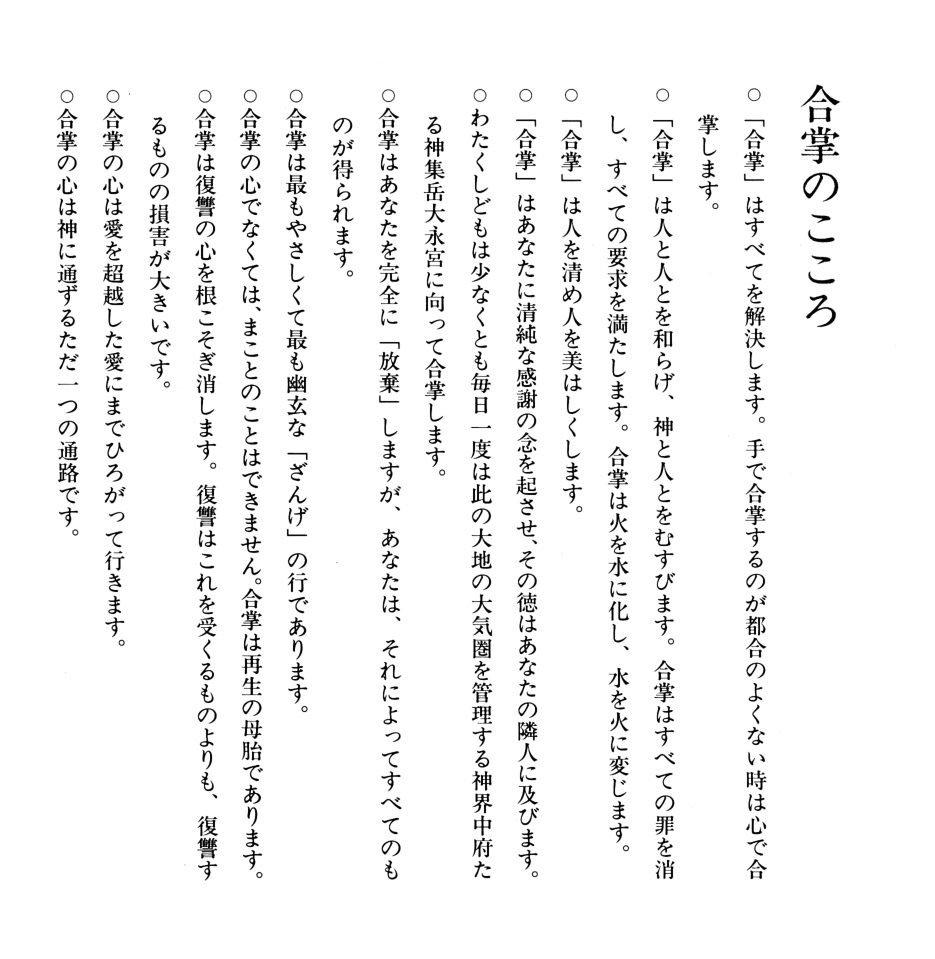 合掌のこころ
○「合掌」はすべてを解決します。手で合掌するのが都合のよくない時は心で合
掌します。
○「合掌」は人と人とを和らげ、神と人とをむすびます。合掌はすべての罪を消
し、すべての要求を満たします。合掌は火を水に化し、水を火に変じます。
○「合掌」は人を清め人を美はしくします。
○「合掌」はあなたに清純な感謝の念を起させ、その徳はあなたの隣人に及びます。
○わたくしどもは少なくとも毎日一度は此の大地の大気圏を管理する神界中府た
る神集岳大永宮に向って合掌します。
○合掌はあなたを完全に「放棄」しますが、あなたは、それによってすべてのも
のが得られます。
○合掌は最もやさしくて最も幽玄な「ざんげ」の行であります。
○合掌の心でなくては、まことのことはできません。合掌は再生の母胎であります。
○合掌は復讐の心を根こそぎ消します。復讐はこれを受くるものよりも、復讐す
るものの損害が大きいです。
○合掌の心は愛を超越した愛にまでひろがって行きます。
○合掌の心は神に通ずるただ一つの通路です。